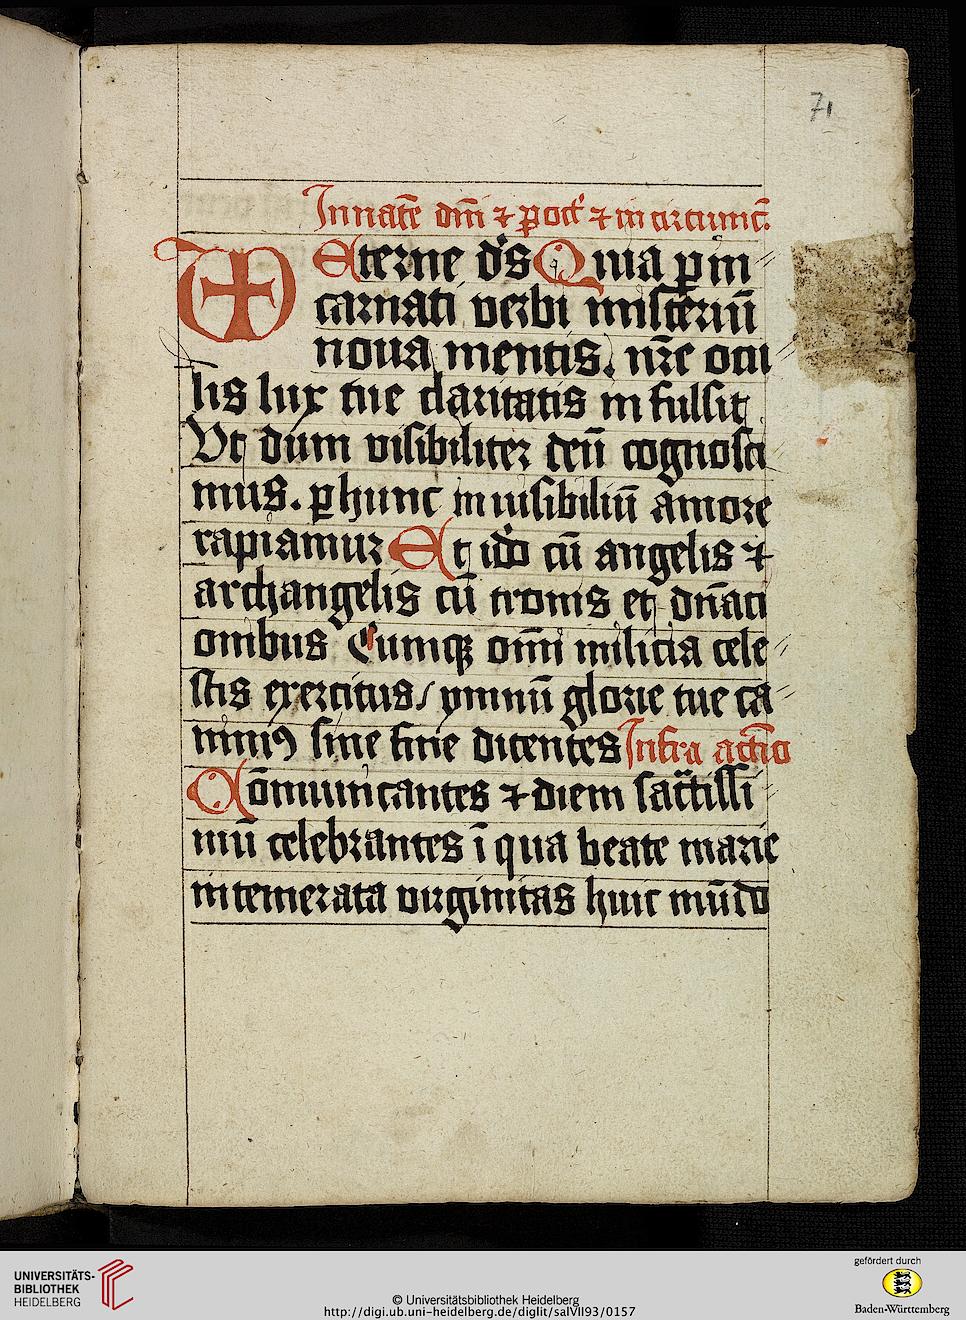 71
In natē dn̄i ⁊ p̱ oct' ⁊ in circūnc̄.
Eterne ds̄ Quia ꝑ in
carnati verbi misteriū
noua mentis. nr̄e ocu
lis lux tue claritatis in fulsit
Vt dum visibiliter deū cognosci
mus. ꝑ hunc in uisibiliū amore
rapiamur Et id̄o cū angelis ⁊
archangelis cū tronis et dn̄aci
onibus Cumqꝫ om̄i milicia cele
stis exercitus / ymnū glorie tue ca
nimꝰ sine fine dicentes Infra actio
Cōmunicantes ⁊ diem sac̄tissi
mū celebrantes ī qua beate marie
intemerata uirginitas huic mūdo
UNIVERSITÄTS-
BIBLIOTHEK
HEIDELBERG
© Universitätsbibliothek Heidelberg
http://digi.ub.uni-heidelberg.de/diglit/salVII93/0157
gefördert durch
Baden-Württemberg